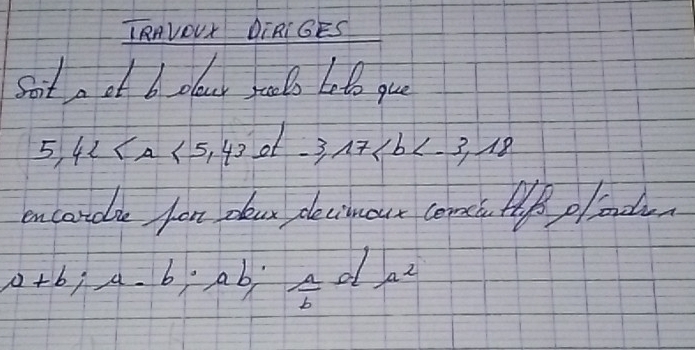 TRAVOUX DIRIGES
Soit a et b deux reels tels que
5,42 < a < 5,43 et -3,17 < b < -3,18
encardre par deux decimaux consécutifs d'ordre
a+b ; a-b ; ab ; a/b et a²